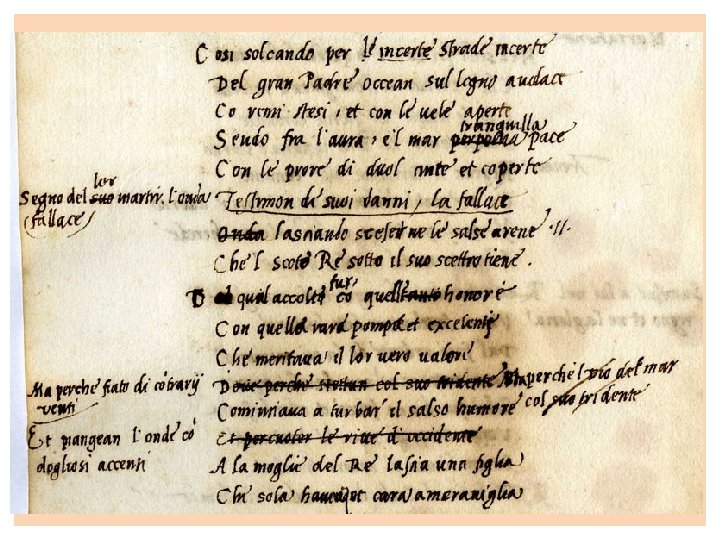 Cosi solcando per le incerte strade incerte
Del gran Padre Occean sul legno audace
Co remi stesi, et con le vele aperte
tranquilla
Sendo fra l'aura, e'l mar perpetua pace
Con le prore di duol cinte et coperte
lor
Segno del suo martir, l'onda
(fallace)
Testimon de suoi danni, la fallace
Onda lasciando scesero ne le salse arene .//.
Che'l Scoto Re sotto il suo scettro tiene.
fur
D quai accolti co quell tanto honore
Con quella rara pompa et excelente
Che meritava il lor vero valore
Ma perche fiato di cõtrarij
venti
Dove perche Nettun col suo tridente Ma perche'l Dio del mar
col suo tridente
Cominciava a turbar il salso humore
Et piangean l'onde cõ
dogliosi accenti
Et percuoter le rive d'occidente
A la moglie del Re lascia una figlia
Che sola havea, et cara a meraviglia